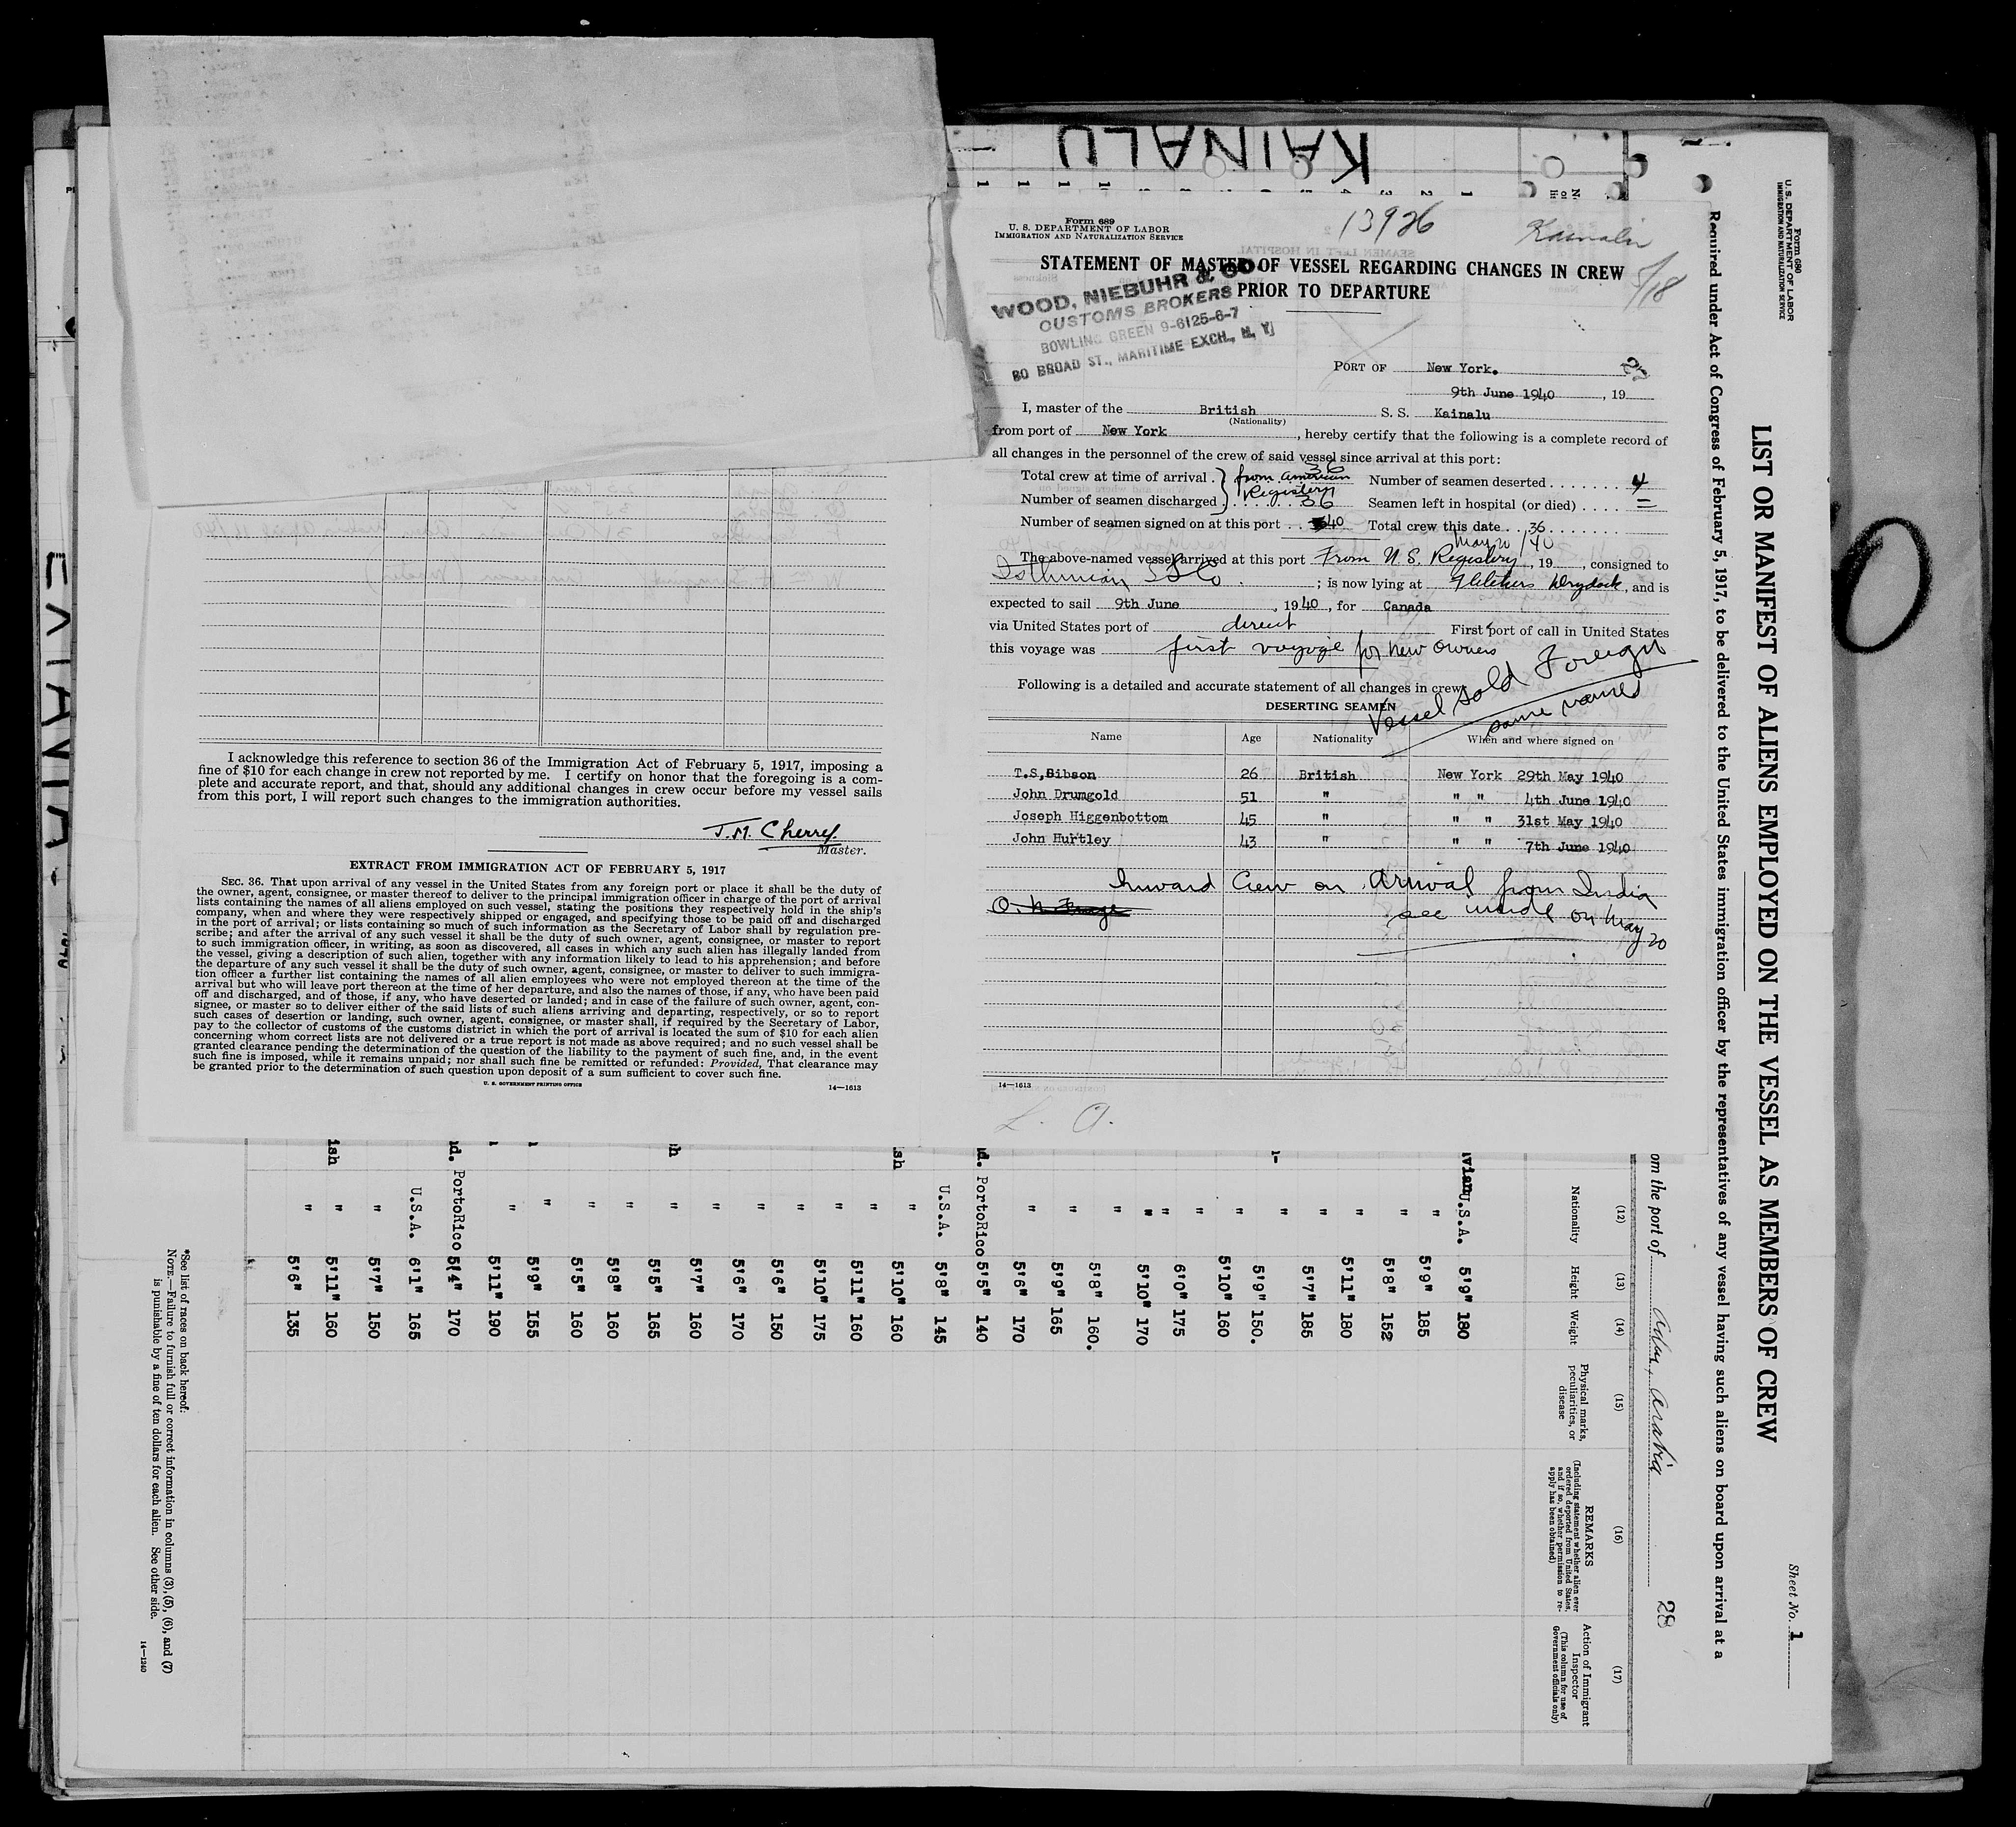 KAINALU
Form 689
U. S. DEPARTMENT OF LABOR
IMMIGRATION AND NATURALIZATION SERVICE
13926
Kainalu
5/18
STATEMENT OF MASTER OF VESSEL REGARDING CHANGES IN CREW
PRIOR TO DEPARTURE
WOOD, NIEBUHR & CO.
CUSTOMS BROKERS
BOWLING GREEN 9-6125-6-7
80 BROAD ST., MARITIME EXCH., N. Y.
PORT OF New York.
9th June 1940, 19
I, master of the British S. S. Kainalu
(Nationality)
from port of New York, hereby certify that the following is a complete record of
all changes in the personnel of the crew of said vessel since arrival at this port:
Total crew at time of arrival . 36 from American Number of seamen deserted . . . . . . . . 4
Number of seamen discharged . Registery 36 Seamen left in hospital (or died) . . . . =
Number of seamen signed on at this port . . 40 Total crew this date . . 36
May 20 / 40
The above-named vessel arrived at this port From U. S. Registery, 19, consigned to
Isthmian SS Co.; is now lying at Fletchers Drydock, and is
expected to sail 9th June, 1940, for Canada
via United States port of direct First port of call in United States
this voyage was first voyage for new owners
Vessel sold Foreign
same name
Following is a detailed and accurate statement of all changes in crew:
DESERTING SEAMEN
Name Age Nationality When and where signed on
T.S,Bibson 26 British New York 29th May 1940
John Drumgold 51 " " " 4th June 1940
Joseph Higgenbottom 45 " " " 31st May 1940
John Hurtley 43 " " " 7th June 1940
Inward Crew on Arrival from India
see inside on May 20
14—1613
L. A.
I acknowledge this reference to section 36 of the Immigration Act of February 5, 1917, imposing a
fine of $10 for each change in crew not reported by me. I certify on honor that the foregoing is a com-
plete and accurate report, and that, should any additional changes in crew occur before my vessel sails
from this port, I will report such changes to the immigration authorities.
J.M. Cherry
Master.
EXTRACT FROM IMMIGRATION ACT OF FEBRUARY 5, 1917
SEC. 36. That upon arrival of any vessel in the United States from any foreign port or place it shall be the duty of
the owner, agent, consignee, or master thereof to deliver to the principal immigration officer in charge of the port of arrival
lists containing the names of all aliens employed on such vessel, stating the positions they respectively hold in the ship's
company, when and where they were respectively shipped or engaged, and specifying those to be paid off and discharged
in the port of arrival; or lists containing so much of such information as the Secretary of Labor shall by regulation pre-
scribe; and after the arrival of any such vessel it shall be the duty of such owner, agent, consignee, or master to report
to such immigration officer, in writing, as soon as discovered, all cases in which any such alien has illegally landed from
the vessel, giving a description of such alien, together with any information likely to lead to his apprehension; and before
the departure of any such vessel it shall be the duty of such owner, agent, consignee, or master to deliver to such immigra-
tion officer a further list containing the names of all alien employees who were not employed thereon at the time of the
arrival but who will leave port thereon at the time of her departure, and also the names of those, if any, who have been paid
off and discharged, and of those, if any, who have deserted or landed; and in case of the failure of such owner, agent, con-
signee, or master so to deliver either of the said lists of such aliens arriving and departing, respectively, or so to report
such cases of desertion or landing, such owner, agent, consignee, or master shall, if required by the Secretary of Labor,
pay to the collector of customs of the customs district in which the port of arrival is located the sum of $10 for each alien
concerning whom correct lists are not delivered or a true report is not made as above required; and no such vessel shall be
granted clearance pending the determination of the question of the liability to the payment of such fine, and, in the event
such fine is imposed, while it remains unpaid; nor shall such fine be remitted or refunded: Provided, That clearance may
be granted prior to the determination of such question upon deposit of a sum sufficient to cover such fine.
U. S. GOVERNMENT PRINTING OFFICE 14—1613
Form 680
U. S. DEPARTMENT OF LABOR
IMMIGRATION AND NATURALIZATION SERVICE
Sheet No. 1
LIST OR MANIFEST OF ALIENS EMPLOYED ON THE VESSEL AS MEMBERS OF CREW
Required under Act of Congress of February 5, 1917, to be delivered to the United States immigration officer by the representatives of any vessel having such aliens on board upon arrival at a
om the port of Aden, Arabia 28
(12) (13) (14) (15) (16) (17)
Nationality Height Weight Physical marks, peculiarities, or disease
REMARKS
(Including statement whether alien ever ordered deported from United States, and if so, whether permission to re-apply has been obtained)
Action of Immigrant Inspector
(This column for use of Government officials only)
vian U.S.A. 5'9" 180
" 5'9" 185
" 5'8" 152
" 5'11" 180
" 5'7" 185
" 5'9" 150.
" 5'10" 160
" 6'0" 175
" 5'10" 170
" 5'8" 160.
" 5'9" 165
" 5'6" 170
d. PortoRico 5'5" 140
U.S.A. 5'8" 145
ish " 5'10" 160
" 5'11" 160
" 5'10" 175
" 5'6" 150
" 5'6" 170
" 5'7" 160
h " 5'5" 165
" 5'8" 160
" 5'5" 160
" 5'9" 155
" 5'11" 190
d. PortoRico 5'4" 170
U.S.A. 6'1" 165
" 5'7" 150
ish " 5'11" 160
" 5'6" 135
*See list of races on back hereof.
NOTE.—Failure to furnish full or correct information in columns (3), (5), (6), and (7)
is punishable by a fine of ten dollars for each alien. See other side.
14—1240